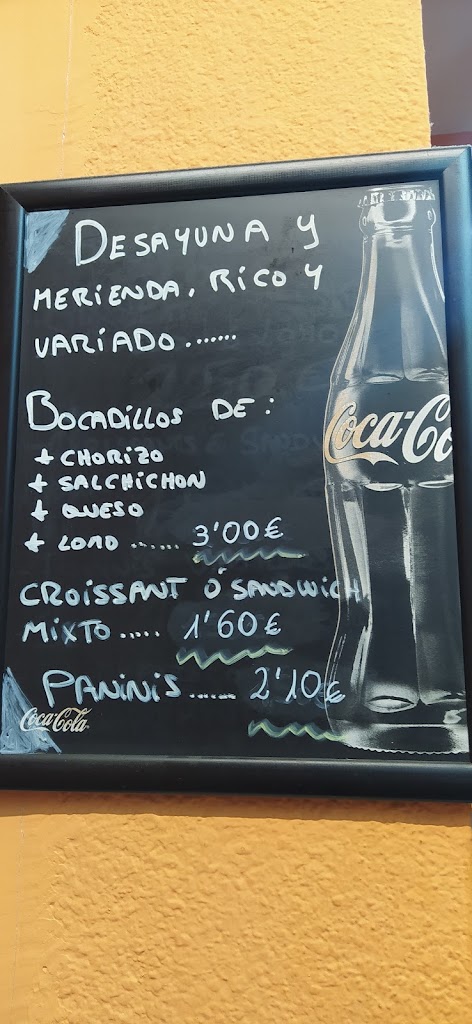 DESAYUNA Y
MERIENDA. RICO Y
VARIADO.......
BOCADILLOS DE:
+ CHORIZO
+ SALCHICHON
+ QUESO
+ LOMO ...... 3'00€
CROISSANT Ó SANDWICH
MIXTO..... 1'60€
PANINIS...... 2'10€
Coca-Co
Coca-Cola